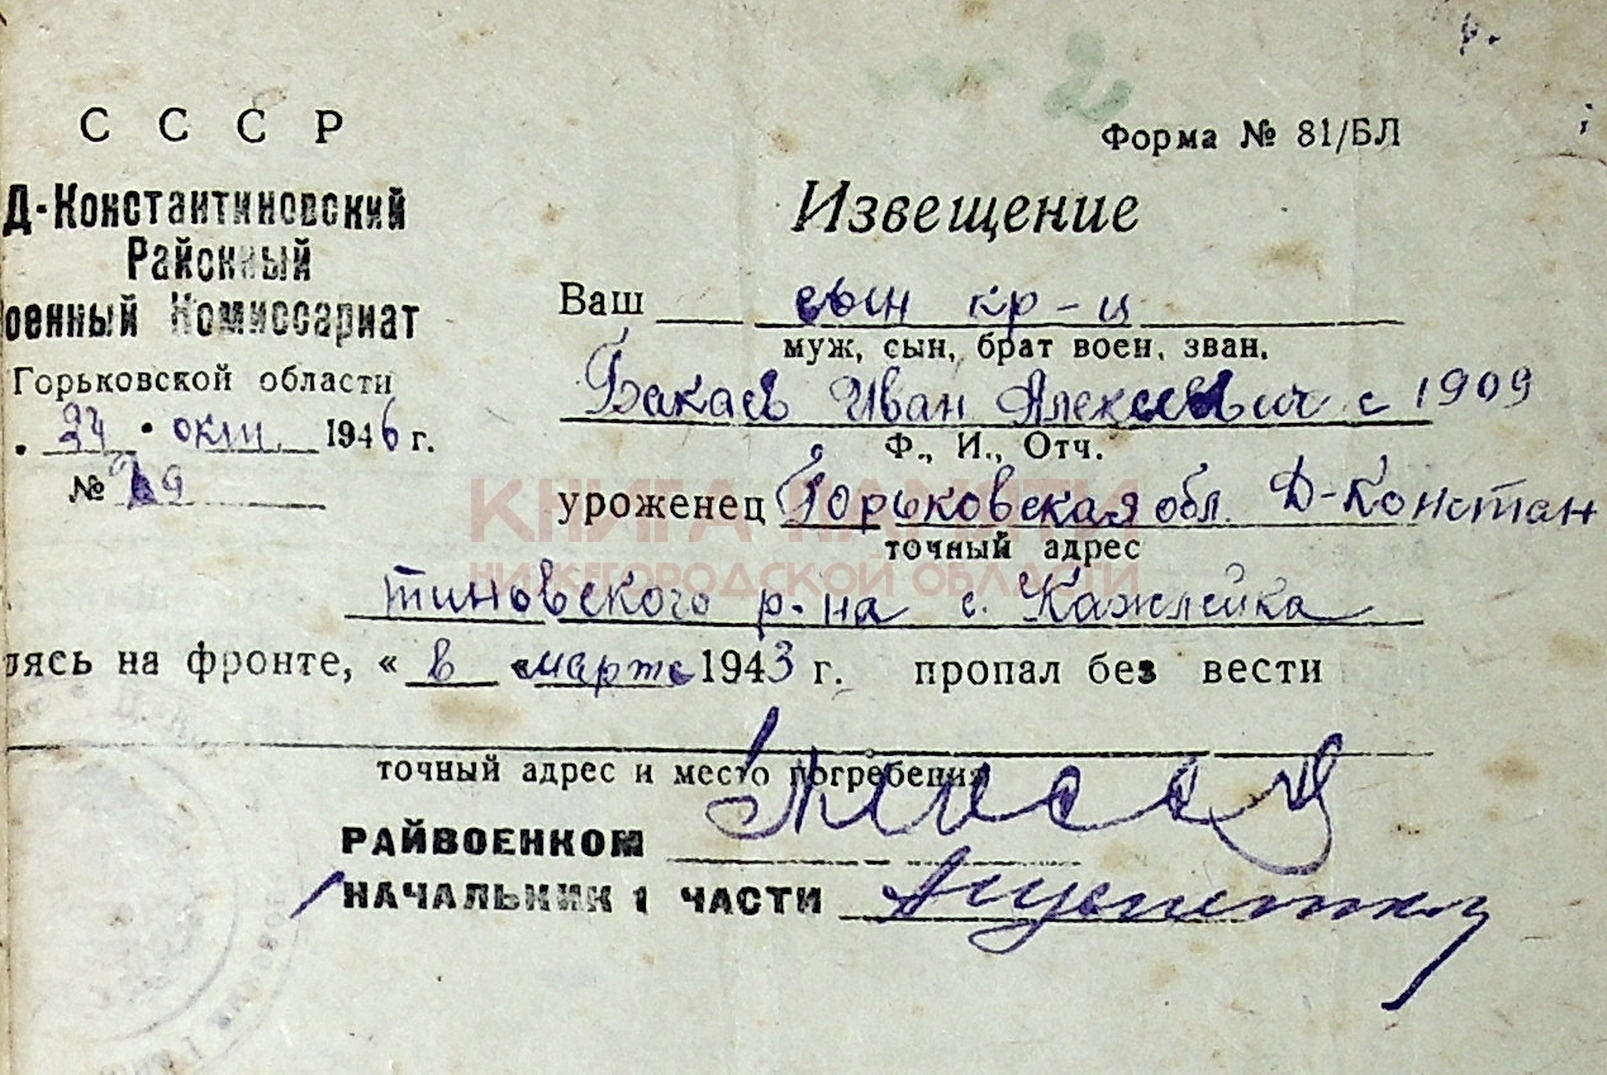 СССР
Форма № 81/БЛ
Д-Константиновский
Районный
оенный Комиссариат
Горьковской области
24 • окт. 1946 г.
№ 29
Извещение
Ваш сын кр-ц
муж, сын, брат воен. зван.
Бакаев Иван Алексеевич с 1909
Ф., И., Отч.
уроженец Горьковская обл. Д-Констан
точный адрес
тиновского р-на с. Кажлейка
лясь на фронте, « в марте 1943 г. пропал без вести
точный адрес и место погребения
РАЙВОЕНКОМ
НАЧАЛЬНИК 1 ЧАСТИ
КНИГА ПАМЯТИ
НИЖЕГОРОДСКОЙ ОБЛАСТИ